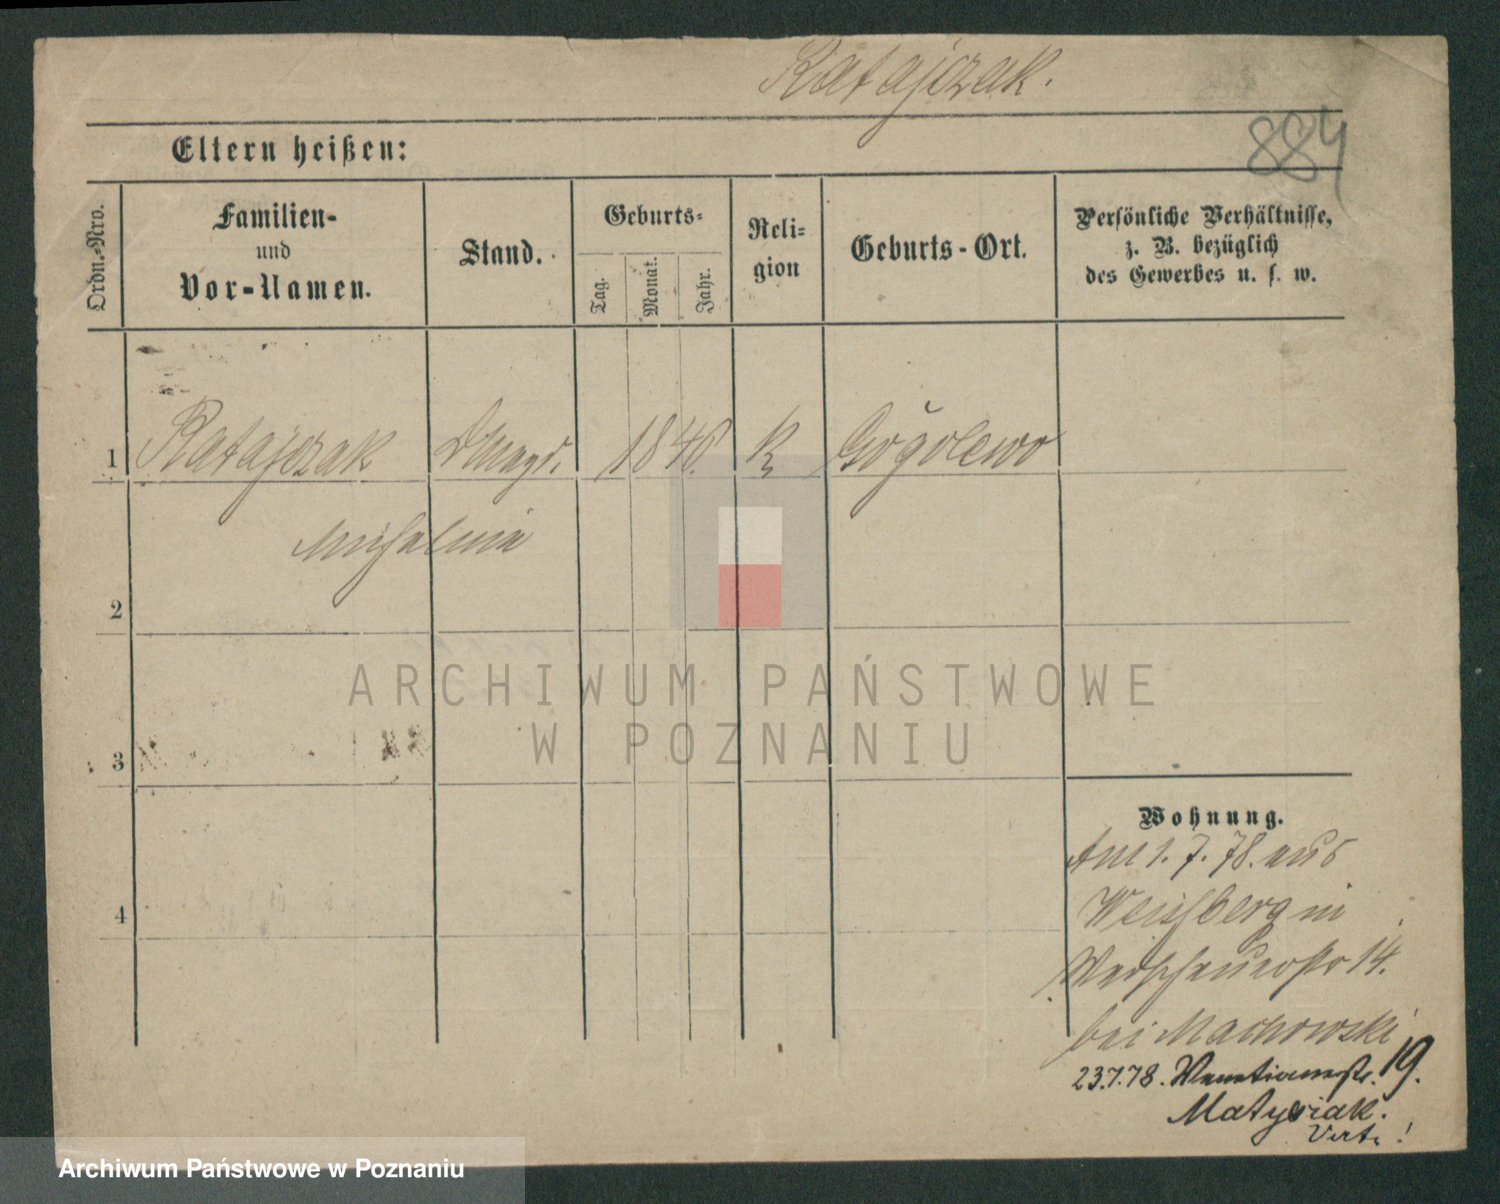 Ratajczak.
884
Eltern heißen:
Ordn.-Nro.
Familien-
und
Vor-Namen.
Stand.
Geburts-
Tag.
Monat.
Jahr.
Reli-
gion
Geburts-Ort.
Persönliche Verhältnisse,
z. B. bezüglich
des Gewerbes u. s. w.
1 Ratajczak DMagd. 1848. K Gogolewo
Michalina
2
ARCHIWUM PAŃSTWOWE
W POZNANIU
3
Wohnung.
Am 1. 7. 78. aus
4
Weissberg in
14.
bei Machowski
23.7.78. Venetianerstr. 19.
Matysiak.
Vert!
Archiwum Państwowe w Poznaniu